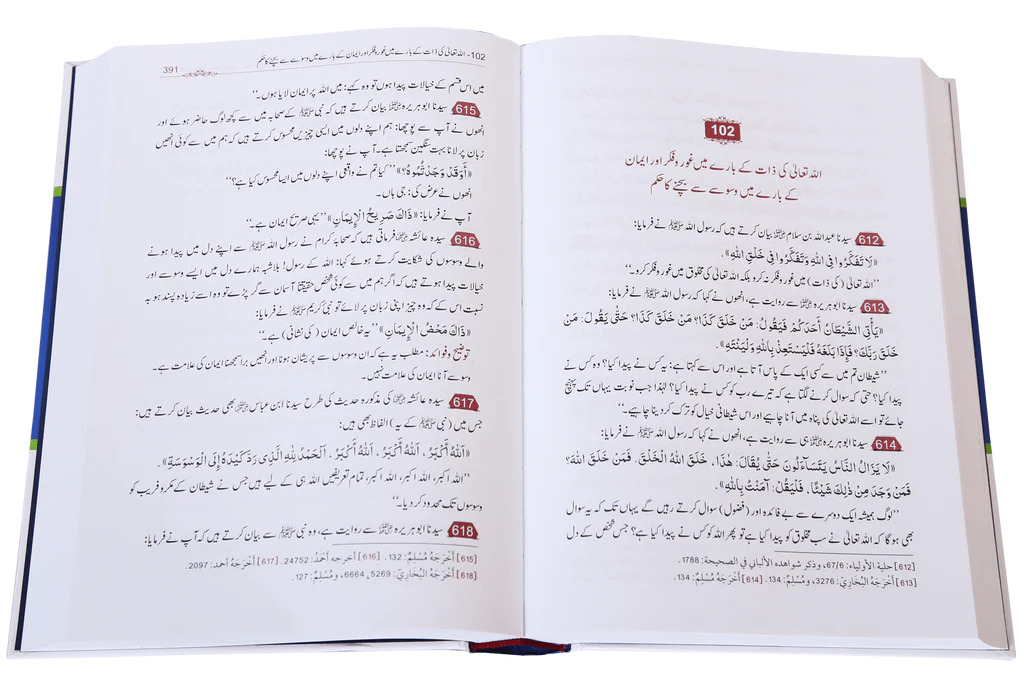 102
اللہ تعالیٰ کی ذات کے بارے میں غور و فکر اور ایمان
کے بارے میں وسوسے سے بچنے کا حکم
612 سیدنا عبداللہ بن سلام رضی اللہ عنہ بیان کرتے ہیں کہ رسول اللہ ﷺ نے فرمایا:
«لَا تَفَكَّرُوا فِي اللهِ وَتَفَكَّرُوا فِي خَلْقِ اللهِ».
’’اللہ تعالیٰ (کی ذات) میں غور و فکر نہ کرو بلکہ اللہ کی مخلوق میں غور و فکر کرو۔‘‘
613 سیدنا ابوہریرہ رضی اللہ عنہ سے روایت ہے، انھوں نے کہا کہ رسول اللہ ﷺ نے فرمایا:
«يَأْتِي الشَّيْطَانُ أَحَدَكُمْ فَيَقُولُ: مَنْ خَلَقَ كَذَا؟ مَنْ خَلَقَ كَذَا؟ حَتَّى يَقُولَ: مَنْ
خَلَقَ رَبَّكَ؟ فَإِذَا بَلَغَهُ فَلْيَسْتَعِذْ بِاللهِ وَلْيَنْتَهِ».
’’شیطان تم میں سے کسی ایک کے پاس آتا ہے اور اس سے کہتا ہے: یہ کس نے پیدا کیا؟ وہ کس نے
پیدا کیا؟ حتی کہ سوال کرنے لگتا ہے کہ تیرے رب کو کس نے پیدا کیا؟ لہٰذا جب نوبت یہاں تک پہنچ
جائے تو اسے اللہ تعالیٰ کی پناہ میں آنا چاہیے اور اس شیطانی خیال کو ترک کر دینا چاہیے۔‘‘
614 سیدنا ابوہریرہ رضی اللہ عنہ ہی سے روایت ہے، انھوں نے کہا کہ رسول اللہ ﷺ نے فرمایا:
«لَا يَزَالُ النَّاسُ يَتَسَاءَلُونَ حَتَّى يُقَالَ: هٰذَا، خَلَقَ اللهُ الْخَلْقَ، فَمَنْ خَلَقَ اللهَ؟
فَمَنْ وَجَدَ مِنْ ذٰلِكَ شَيْئًا، فَلْيَقُلْ: آمَنْتُ بِاللهِ».
’’لوگ ہمیشہ ایک دوسرے سے بے فائدہ اور (فضول) سوال کرتے رہیں گے یہاں تک کہ یہ سوال
بھی ہو گا کہ اللہ تعالیٰ نے سب مخلوق کو پیدا کیا ہے تو پھر اللہ کو کس نے پیدا کیا ہے؟ جس شخص کے دل
[612] حلية الأولياء: 67/6، وذكر شواهده الألباني في الصحيحة: 1788.
[613] أَخْرَجَهُ الْبُخَارِيّ: 3276، ومُسْلِمٌ: 134. [614] أَخْرَجَهُ مُسْلِمٌ: 134.
102- اللہ تعالیٰ کی ذات کے بارے میں غور و فکر اور ایمان کے بارے میں وسوسے سے بچنے کا حکم
391
میں اس قسم کے خیالات پیدا ہوں تو وہ کہے: میں اللہ پر ایمان لایا ہوں۔‘‘
615 سیدنا ابوہریرہ رضی اللہ عنہ بیان کرتے ہیں کہ نبی ﷺ کے صحابہ میں سے کچھ لوگ حاضر ہوئے اور
انھوں نے آپ سے پوچھا: ہم اپنے دلوں میں ایسی چیزیں محسوس کرتے ہیں کہ ہم میں سے کوئی انھیں
زبان پر لانا بہت سنگین سمجھتا ہے۔ آپ نے پوچھا:
«أَوَقَدْ وَجَدْتُّمُوهُ؟» ’’کیا تم نے واقعی اپنے دلوں میں ایسا محسوس کیا ہے؟‘‘
انھوں نے عرض کی: جی ہاں۔
آپ نے فرمایا: «ذَاكَ صَرِيحُ الْإِيمَانِ» ’’یہی صریح ایمان ہے۔‘‘
616 سیدہ عائشہ رضی اللہ عنہا فرماتی ہیں کہ صحابہ کرام نے رسول اللہ ﷺ سے اپنے دل میں پیدا ہونے
والے وسوسوں کی شکایت کرتے ہوئے کہا: اللہ کے رسول! بلاشبہ ہمارے دل میں ایسے وسوسے اور
خیالات پیدا ہوتے ہیں کہ اگر ہم میں سے کوئی شخص حقیقتاً آسمان سے گر پڑے تو وہ اسے زیادہ پسند ہو بہ
نسبت اس کے کہ وہ چیز اپنی زبان پر لائے تو نبی کریم ﷺ نے فرمایا:
«ذَاكَ مَحْضُ الْإِيمَانِ» ’’یہ خالص ایمان (کی نشانی) ہے۔‘‘
توضیح و فوائد: مطلب یہ ہے کہ ان وسوسوں سے پریشان ہونا اور انھیں برا سمجھنا ایمان کی علامت ہے۔
وسوسے آنا ایمان کی علامت نہیں۔
617 سیدہ عائشہ رضی اللہ عنہا کی مذکورہ حدیث کی طرح سیدنا ابن عباس رضی اللہ عنہما بھی حدیث بیان کرتے ہیں:
جس میں (نبی ﷺ کے یہ) الفاظ بھی ہیں:
«اَللهُ أَكْبَرُ، اَللهُ أَكْبَرُ، اَللهُ أَكْبَرُ، اَلْحَمْدُ لِلّٰهِ الَّذِي رَدَّ كَيْدَهُ إِلَى الْوَسْوَسَةِ».
’’اللہ اکبر، اللہ اکبر، اللہ اکبر، تمام تعریفیں اللہ ہی کے لیے ہیں جس نے شیطان کے مکر و فریب کو
وسوسوں تک محدود کر دیا۔‘‘
618 سیدنا ابوہریرہ رضی اللہ عنہ سے روایت ہے، وہ نبی ﷺ سے بیان کرتے ہیں کہ آپ نے فرمایا:
[615] أَخْرَجَهُ مُسْلِمٌ: 132. [616] أخرجه أَحْمَدُ: 24752. [617] أَخْرَجَهُ أحمد: 2097.
[618] أَخْرَجَهُ الْبُخَارِيّ: 5269, 6664، ومُسْلِمٌ: 127.